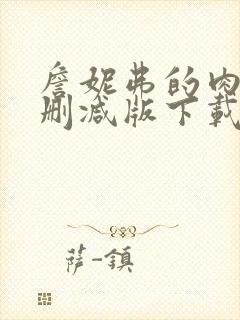 詹妮弗的肉
删减版下载
萨-镇